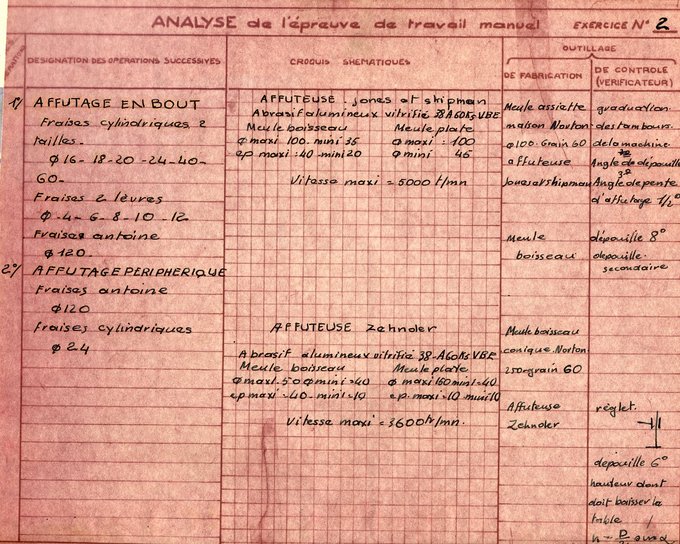 ANALYSE de l'épreuve de travail manuel EXERCICE N° 2
DESIGNATION DES OPERATIONS SUCCESSIVES
CROQUIS SHEMATIQUES
OUTILLAGE
DE FABRICATION
DE CONTROLE
(VERIFICATEUR)
1°/ AFFUTAGE EN BOUT
Fraises cylindriques 2
tailles.
φ 16 - 18 - 20 - 24 - 40 -
60 -
Fraises 2 lèvres
φ - 4 - 6 - 8 - 10 - 12
Fraises antoine
φ 120.
2°/ AFFUTAGE PERIPHERIQUE
Fraises antoine
φ 120
Fraises cylindriques
φ 24
AFFUTEUSE . jones et shipman
Abrasif alumineux vitrifié 38A60K5 VBE
Meule boisseau Meule plate
φ maxi 100 - mini 35 φ maxi : 100
ep maxi : 40 - mini 20 φ mini 45
Vitesse maxi = 5000 t/mn
AFFUTEUSE Zehnder
Abrasif alumineux vitrifié 38-A60K5 VBE
Meule boisseau Meule plate
φ maxi 50 φ mini = 40 φ maxi 150 mini = 40
ep maxi = 40 - mini = 10 ep. maxi = 10 mini 10
Vitesse maxi = 3600 tr/mn.
Meule assiette
maison Norton
φ 100 - Grain 60
affuteuse
Jones et shipman
Meule
boisseau
Meule boisseau
conique Norton
250 grain 60
Affuteuse
Zehnder
graduation
des tambours
de la machine
Angle de dépouille
3°
Angle de pente
d'affutage 1/2°
dépouille 8°
depouille
secondaire
réglet.
dépouille 6°
hauteur dont
doit baisser la
table